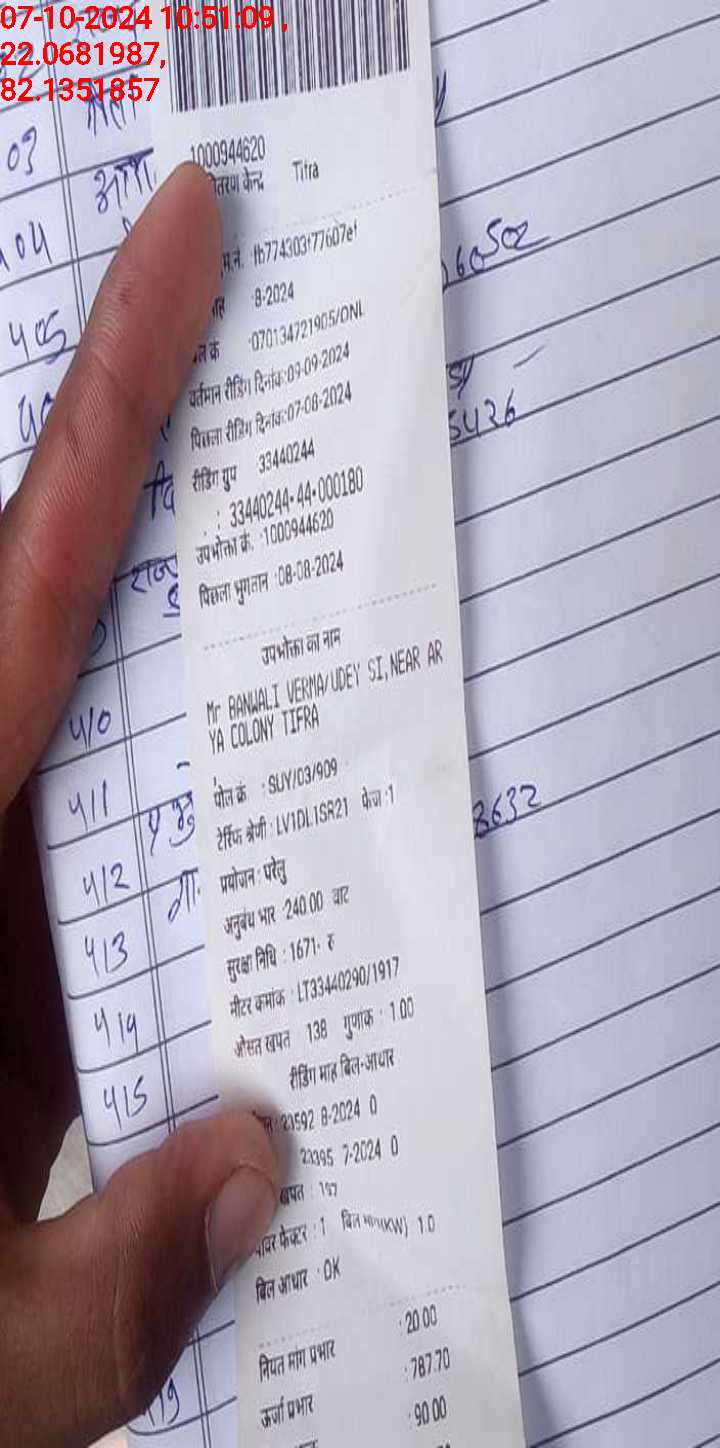 07-10-2024 10:51:09,
22.0681987,
82.1351857
1000944620
केन्द्र Titra
8-2024
070134721905/ONL
वर्तमान रीडिंग दिनांक:09-09-2024
पिछला रीडिंग दिनांक:07-08-2024
रीडिंग ग्रुप 33440244
: 33440244-44-000180
उपभोक्ता क्रं. :1000944620
पिछला भुगतान :08-08-2024
उपभोक्ता का नाम
Mr BANWALI VERMA/UDEY SI,NEAR AR
YA COLONY TIFRA
पोल क्रं : SUY/03/909
टेरिफ श्रेणी : LV1DL1SR21 फेज :1
प्रयोजन : घरेलु
अनुबंध भार 240.00 वाट
सुरक्षा निधि : 1671- रु
मीटर कमांक : LT33440290/1917
औसत खपत 138 गुणांक : 1.00
रीडिंग माह बिल-आधार
23592 8-2024 0
23395 7-2024 0
खपत : 197
पावर फेक्टर : 1 बिल (KW) 1.0
बिल आधार : OK
नियत मांग प्रभार :20.00
ऊर्जा प्रभार :787.70
:90.00
03
404
405
410
411
412
413
414
415
16502
5426
8632